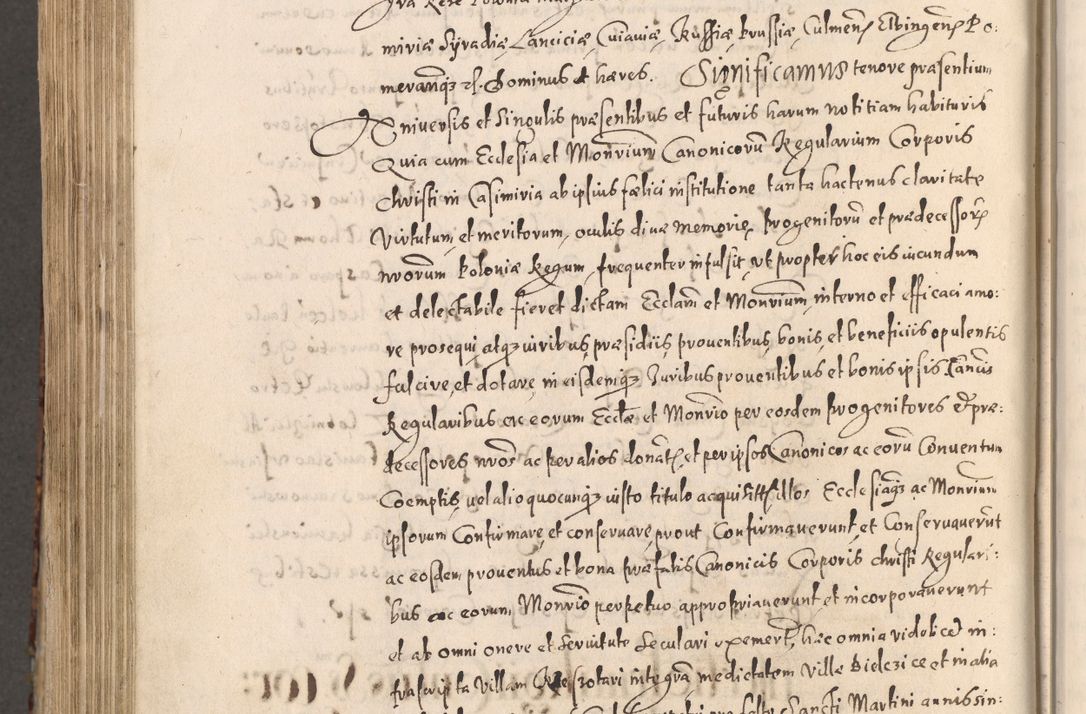 miriæ Syradiæ, Lanciciæ, Cuiaviæ, Russiæ Prussiæ, Culmen, Elbingen, Po:
meraniæq3 &c. Dominus & hæres. Significamus tenore præsentium
Vniversis et Singulis præsentibus et futuris harum notitiam habituris
Quia cum Ecclesia et Monrium Canonicorũ Regularium Corporis
Christi in Casimiria ab ipsius fælici institutione tanta hactenus claritate
Virtutum, et meritorum, oculis divæ memoriæ, Progenitorũ et prædecessorũ
nrorum Poloniæ Regum, frequenter infulsit, vt propter hoc eis iucundum
et delectabile fieret dictam Ecclam et Monrium, interno et efficaci amo:
re prosequi, atq3 viribus, præsidiis, proventibus, bonis, et beneficiis opulentis
fulcire, et dotare, in eisdemq3 Iuribus proventibus et bonis ipsis Cancis
Regularibus ac eorum Ecclæ et Monrio per eosdem Progenitores et præ:
decessores nros ac per alios donat, et per ipsos Canonicos ac eorũ Conventum
Coemptis, vel alio quocunq3 iusto titulo acquisitis, illos Ecclesiamq3 ac Monrium
ipsorum Confirmare, et conservare, prout Confirmaverunt, et Conservaverũt
ac eosdem proventus et bona præfatis Canonicis Corporis Christi Regulari:
bus ac eorum Monrio perpetuo appropriaverunt, et incorporaverunt
et ab omni onere et Servitute Seculari exemert, hæc omnia videlicet in:
frascripta Villam integrã, medietatem Villæ Bielczice et in alia
Sancti Martini annis sin: